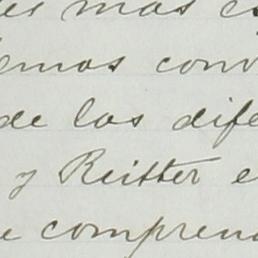 mas
emos conv
de las dife
y Reitter e
e comprend